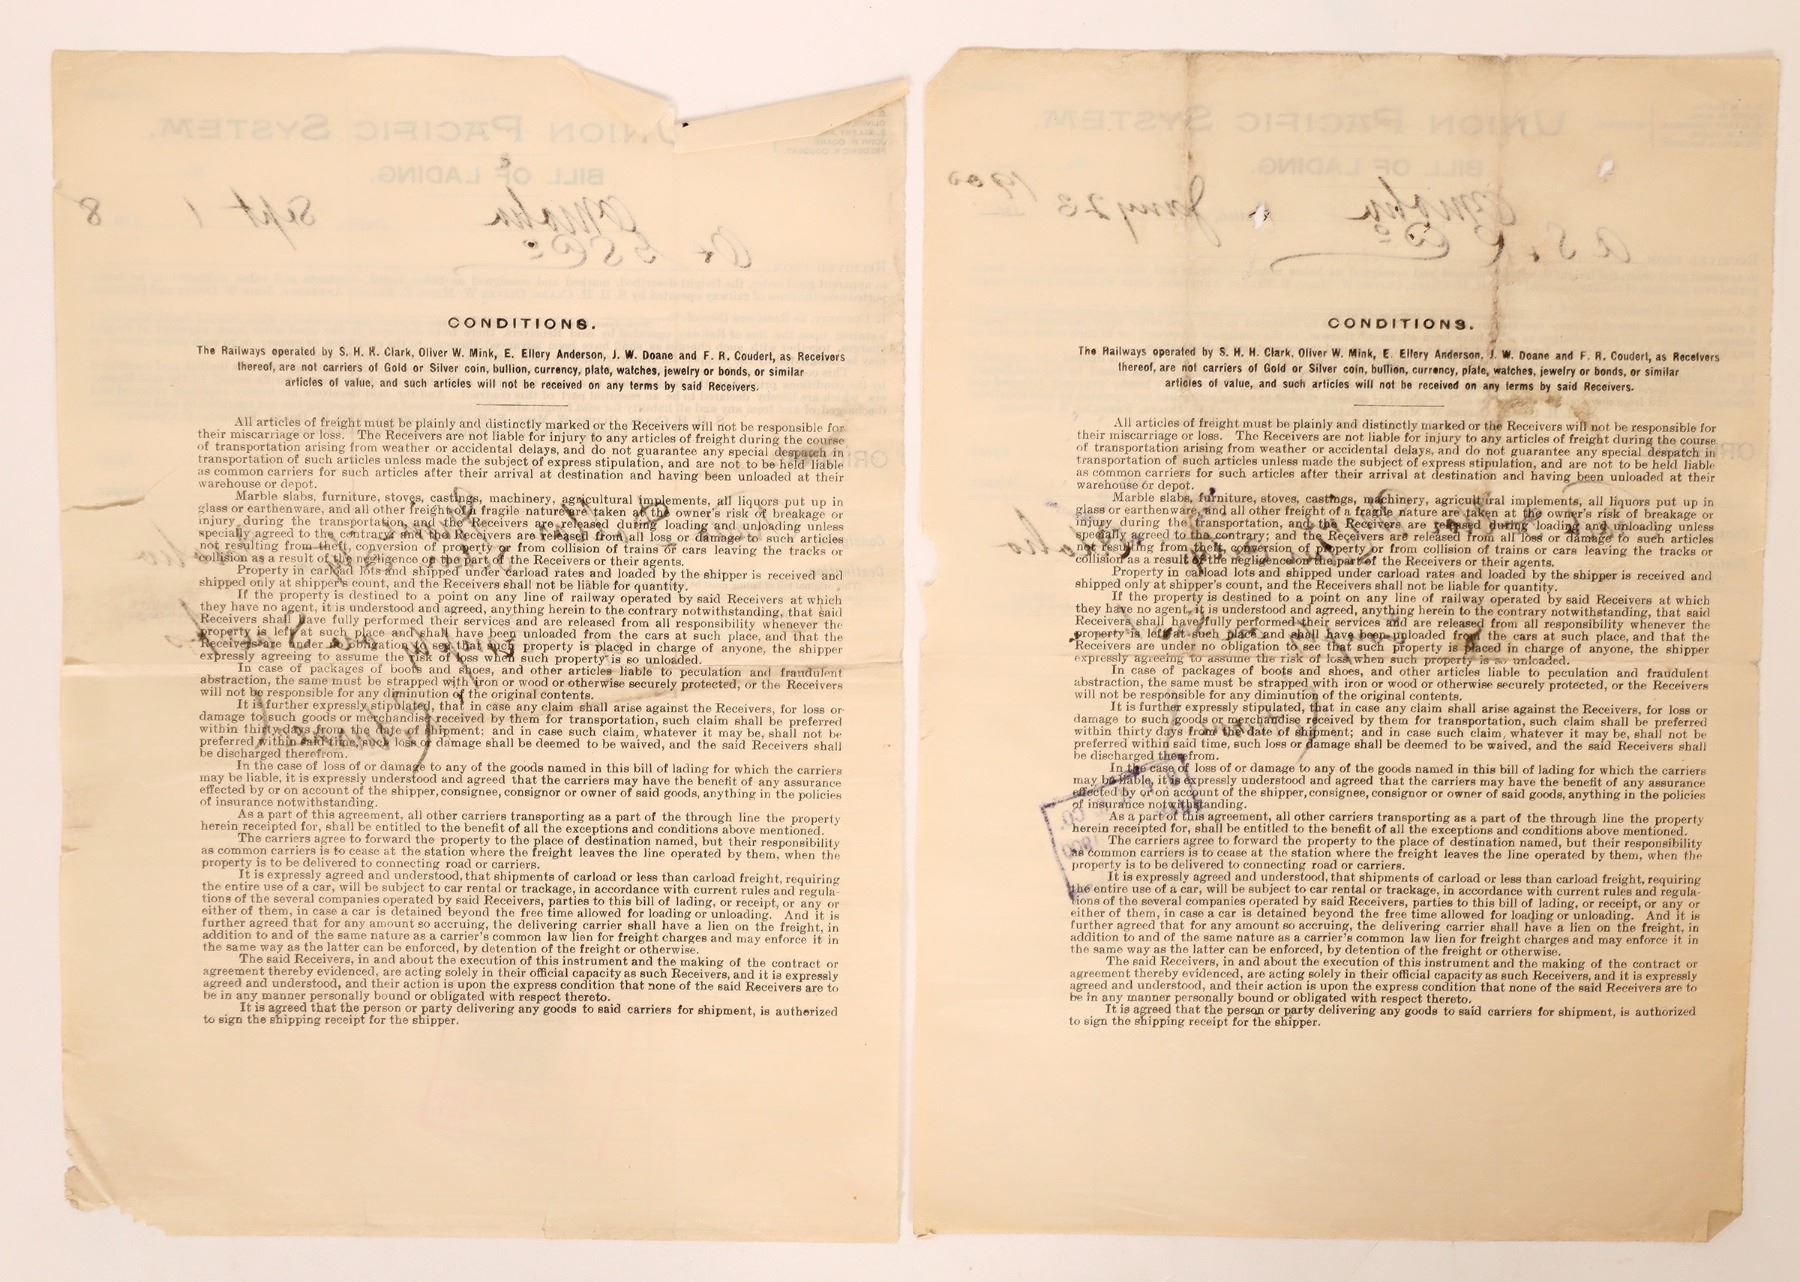 CONDITIONS.
The Railways operated by S. H. H. Clark, Oliver W. Mink, E. Ellery Anderson, J. W. Doane and F. R. Coudert, as Receivers
thereof, are not carriers of Gold or Silver coin, bullion, currency, plate, watches, jewelry or bonds, or similar
articles of value, and such articles will not be received on any terms by said Receivers.
All articles of freight must be plainly and distinctly marked or the Receivers will not be responsible for
their miscarriage or loss. The Receivers are not liable for injury to any articles of freight during the course
of transportation arising from weather or accidental delays, and do not guarantee any special despatch in
transportation of such articles unless made the subject of express stipulation, and are not to be held liable
as common carriers for such articles after their arrival at destination and having been unloaded at their
warehouse or depot.
Marble slabs, furniture, stoves, castings, machinery, agricultural implements, all liquors put up in
glass or earthenware, and all other freight of a fragile nature are taken at the owner's risk of breakage or
injury during the transportation, and the Receivers are released during loading and unloading unless
specially agreed to the contrary; and the Receivers are released from all loss or damage to such articles
not resulting from theft, conversion of property or from collision of trains or cars leaving the tracks or
collision as a result of the negligence on the part of the Receivers or their agents.
Property in carload lots and shipped under carload rates and loaded by the shipper is received and
shipped only at shipper's count, and the Receivers shall not be liable for quantity.
If the property is destined to a point on any line of railway operated by said Receivers at which
they have no agent, it is understood and agreed, anything herein to the contrary notwithstanding, that said
Receivers shall have fully performed their services and are released from all responsibility whenever the
property is left at such place and shall have been unloaded from the cars at such place, and that the
Receivers are under no obligation to see that such property is placed in charge of anyone, the shipper
expressly agreeing to assume the risk of loss when such property is so unloaded.
In case of packages of boots and shoes, and other articles liable to peculation and fraudulent
abstraction, the same must be strapped with iron or wood or otherwise securely protected, or the Receivers
will not be responsible for any diminution of the original contents.
It is further expressly stipulated, that in case any claim shall arise against the Receivers, for loss or
damage to such goods or merchandise received by them for transportation, such claim shall be preferred
within thirty days from the date of shipment; and in case such claim, whatever it may be, shall not be
preferred within said time, such loss or damage shall be deemed to be waived, and the said Receivers shall
be discharged therefrom.
In the case of loss of or damage to any of the goods named in this bill of lading for which the carriers
may be liable, it is expressly understood and agreed that the carriers may have the benefit of any assurance
effected by or on account of the shipper, consignee, consignor or owner of said goods, anything in the policies
of insurance notwithstanding.
As a part of this agreement, all other carriers transporting as a part of the through line the property
herein receipted for, shall be entitled to the benefit of all the exceptions and conditions above mentioned.
The carriers agree to forward the property to the place of destination named, but their responsibility
as common carriers is to cease at the station where the freight leaves the line operated by them, when the
property is to be delivered to connecting road or carriers.
It is expressly agreed and understood, that shipments of carload or less than carload freight, requiring
the entire use of a car, will be subject to car rental or trackage, in accordance with current rules and regula-
tions of the several companies operated by said Receivers, parties to this bill of lading, or receipt, or any or
either of them, in case a car is detained beyond the free time allowed for loading or unloading. And it is
further agreed that for any amount so accruing, the delivering carrier shall have a lien on the freight, in
addition to and of the same nature as a carrier's common law lien for freight charges and may enforce it in
the same way as the latter can be enforced, by detention of the freight or otherwise.
The said Receivers, in and about the execution of this instrument and the making of the contract or
agreement thereby evidenced, are acting solely in their official capacity as such Receivers, and it is expressly
agreed and understood, and their action is upon the express condition that none of the said Receivers are to
be in any manner personally bound or obligated with respect thereto.
It is agreed that the person or party delivering any goods to said carriers for shipment, is authorized
to sign the shipping receipt for the shipper.
CONDITIONS.
The Railways operated by S. H. H. Clark, Oliver W. Mink, E. Ellery Anderson, J. W. Doane and F. R. Coudert, as Receivers
thereof, are not carriers of Gold or Silver coin, bullion, currency, plate, watches, jewelry or bonds, or similar
articles of value, and such articles will not be received on any terms by said Receivers.
All articles of freight must be plainly and distinctly marked or the Receivers will not be responsible for
their miscarriage or loss. The Receivers are not liable for injury to any articles of freight during the course
of transportation arising from weather or accidental delays, and do not guarantee any special despatch in
transportation of such articles unless made the subject of express stipulation, and are not to be held liable
as common carriers for such articles after their arrival at destination and having been unloaded at their
warehouse or depot.
Marble slabs, furniture, stoves, castings, machinery, agricultural implements, all liquors put up in
glass or earthenware, and all other freight of a fragile nature are taken at the owner's risk of breakage or
injury during the transportation, and the Receivers are released during loading and unloading unless
specially agreed to the contrary; and the Receivers are released from all loss or damage to such articles
not resulting from theft, conversion of property or from collision of trains or cars leaving the tracks or
collision as a result of the negligence on the part of the Receivers or their agents.
Property in carload lots and shipped under carload rates and loaded by the shipper is received and
shipped only at shipper's count, and the Receivers shall not be liable for quantity.
If the property is destined to a point on any line of railway operated by said Receivers at which
they have no agent, it is understood and agreed, anything herein to the contrary notwithstanding, that said
Receivers shall have fully performed their services and are released from all responsibility whenever the
property is left at such place and shall have been unloaded from the cars at such place, and that the
Receivers are under no obligation to see that such property is placed in charge of anyone, the shipper
expressly agreeing to assume the risk of loss when such property is so unloaded.
In case of packages of boots and shoes, and other articles liable to peculation and fraudulent
abstraction, the same must be strapped with iron or wood or otherwise securely protected, or the Receivers
will not be responsible for any diminution of the original contents.
It is further expressly stipulated, that in case any claim shall arise against the Receivers, for loss or
damage to such goods or merchandise received by them for transportation, such claim shall be preferred
within thirty days from the date of shipment; and in case such claim, whatever it may be, shall not be
preferred within said time, such loss or damage shall be deemed to be waived, and the said Receivers shall
be discharged therefrom.
In the case of loss of or damage to any of the goods named in this bill of lading for which the carriers
may be liable, it is expressly understood and agreed that the carriers may have the benefit of any assurance
effected by or on account of the shipper, consignee, consignor or owner of said goods, anything in the policies
of insurance notwithstanding.
As a part of this agreement, all other carriers transporting as a part of the through line the property
herein receipted for, shall be entitled to the benefit of all the exceptions and conditions above mentioned.
The carriers agree to forward the property to the place of destination named, but their responsibility
as common carriers is to cease at the station where the freight leaves the line operated by them, when the
property is to be delivered to connecting road or carriers.
It is expressly agreed and understood, that shipments of carload or less than carload freight, requiring
the entire use of a car, will be subject to car rental or trackage, in accordance with current rules and regula-
tions of the several companies operated by said Receivers, parties to this bill of lading, or receipt, or any or
either of them, in case a car is detained beyond the free time allowed for loading or unloading. And it is
further agreed that for any amount so accruing, the delivering carrier shall have a lien on the freight, in
addition to and of the same nature as a carrier's common law lien for freight charges and may enforce it in
the same way as the latter can be enforced, by detention of the freight or otherwise.
The said Receivers, in and about the execution of this instrument and the making of the contract or
agreement thereby evidenced, are acting solely in their official capacity as such Receivers, and it is expressly
agreed and understood, and their action is upon the express condition that none of the said Receivers are to
be in any manner personally bound or obligated with respect thereto.
It is agreed that the person or party delivering any goods to said carriers for shipment, is authorized
to sign the shipping receipt for the shipper.